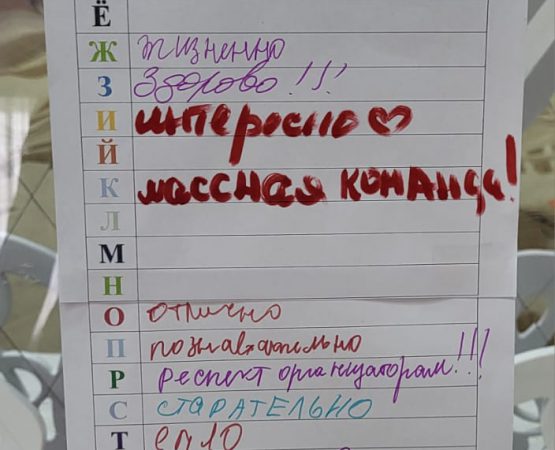 Ё
Ж жизненно
З Здорово!!!
И интересно ♡
Й
К лассная команда!
Л
М
Н
О отлично
П познавательно
Р респект организаторам!!!
С СТАРАТЕЛЬНО
Т епло